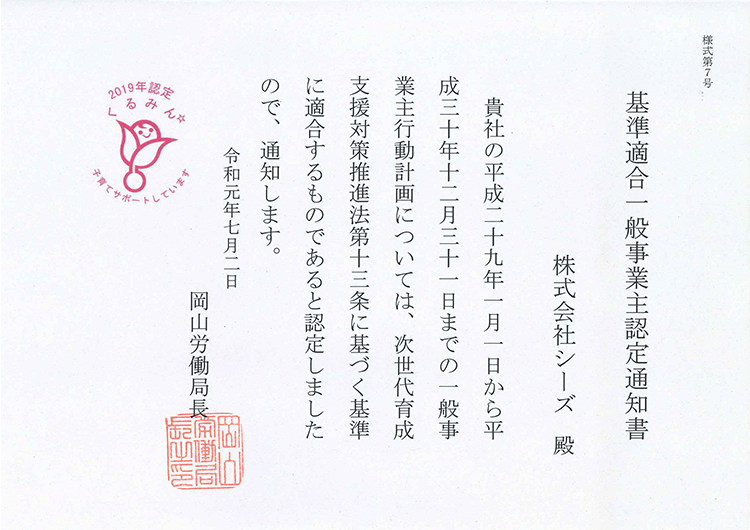 様式第7号
基準適合一般事業主認定通知書
株式会社シーズ 殿
貴社の平成二十九年一月一日から平
成三十年十二月三十一日までの一般事
業主行動計画については、次世代育成
支援対策推進法第十三条に基づく基準
に適合するものであると認定しました
ので、通知します。
令和元年七月二日
岡山労働局長
岡山
労働局
長之印
2019年認定
くるみん☆
子育てサポートしています